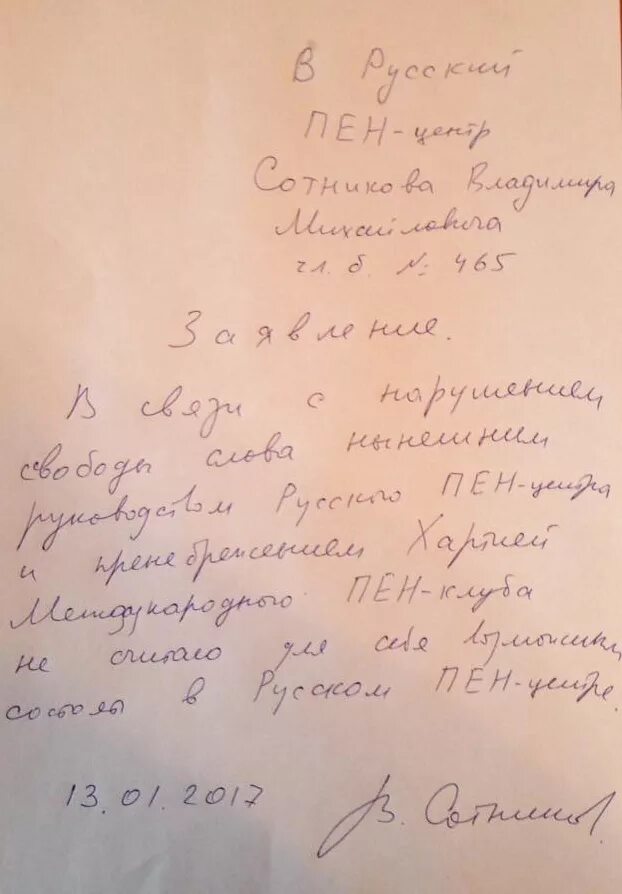 В Русский
ПЕН-центр
Сотникова Владимира
Михайловича
чл. б. № 465
Заявление.
В связи с нарушением
свободы слова нынешним
руководством Русского ПЕН-центра
и пренебрежением Хартией
Международного ПЕН-клуба
не считаю для себя возможным
состоять в Русском ПЕН-центре.
13.01.2017 В. Сотников